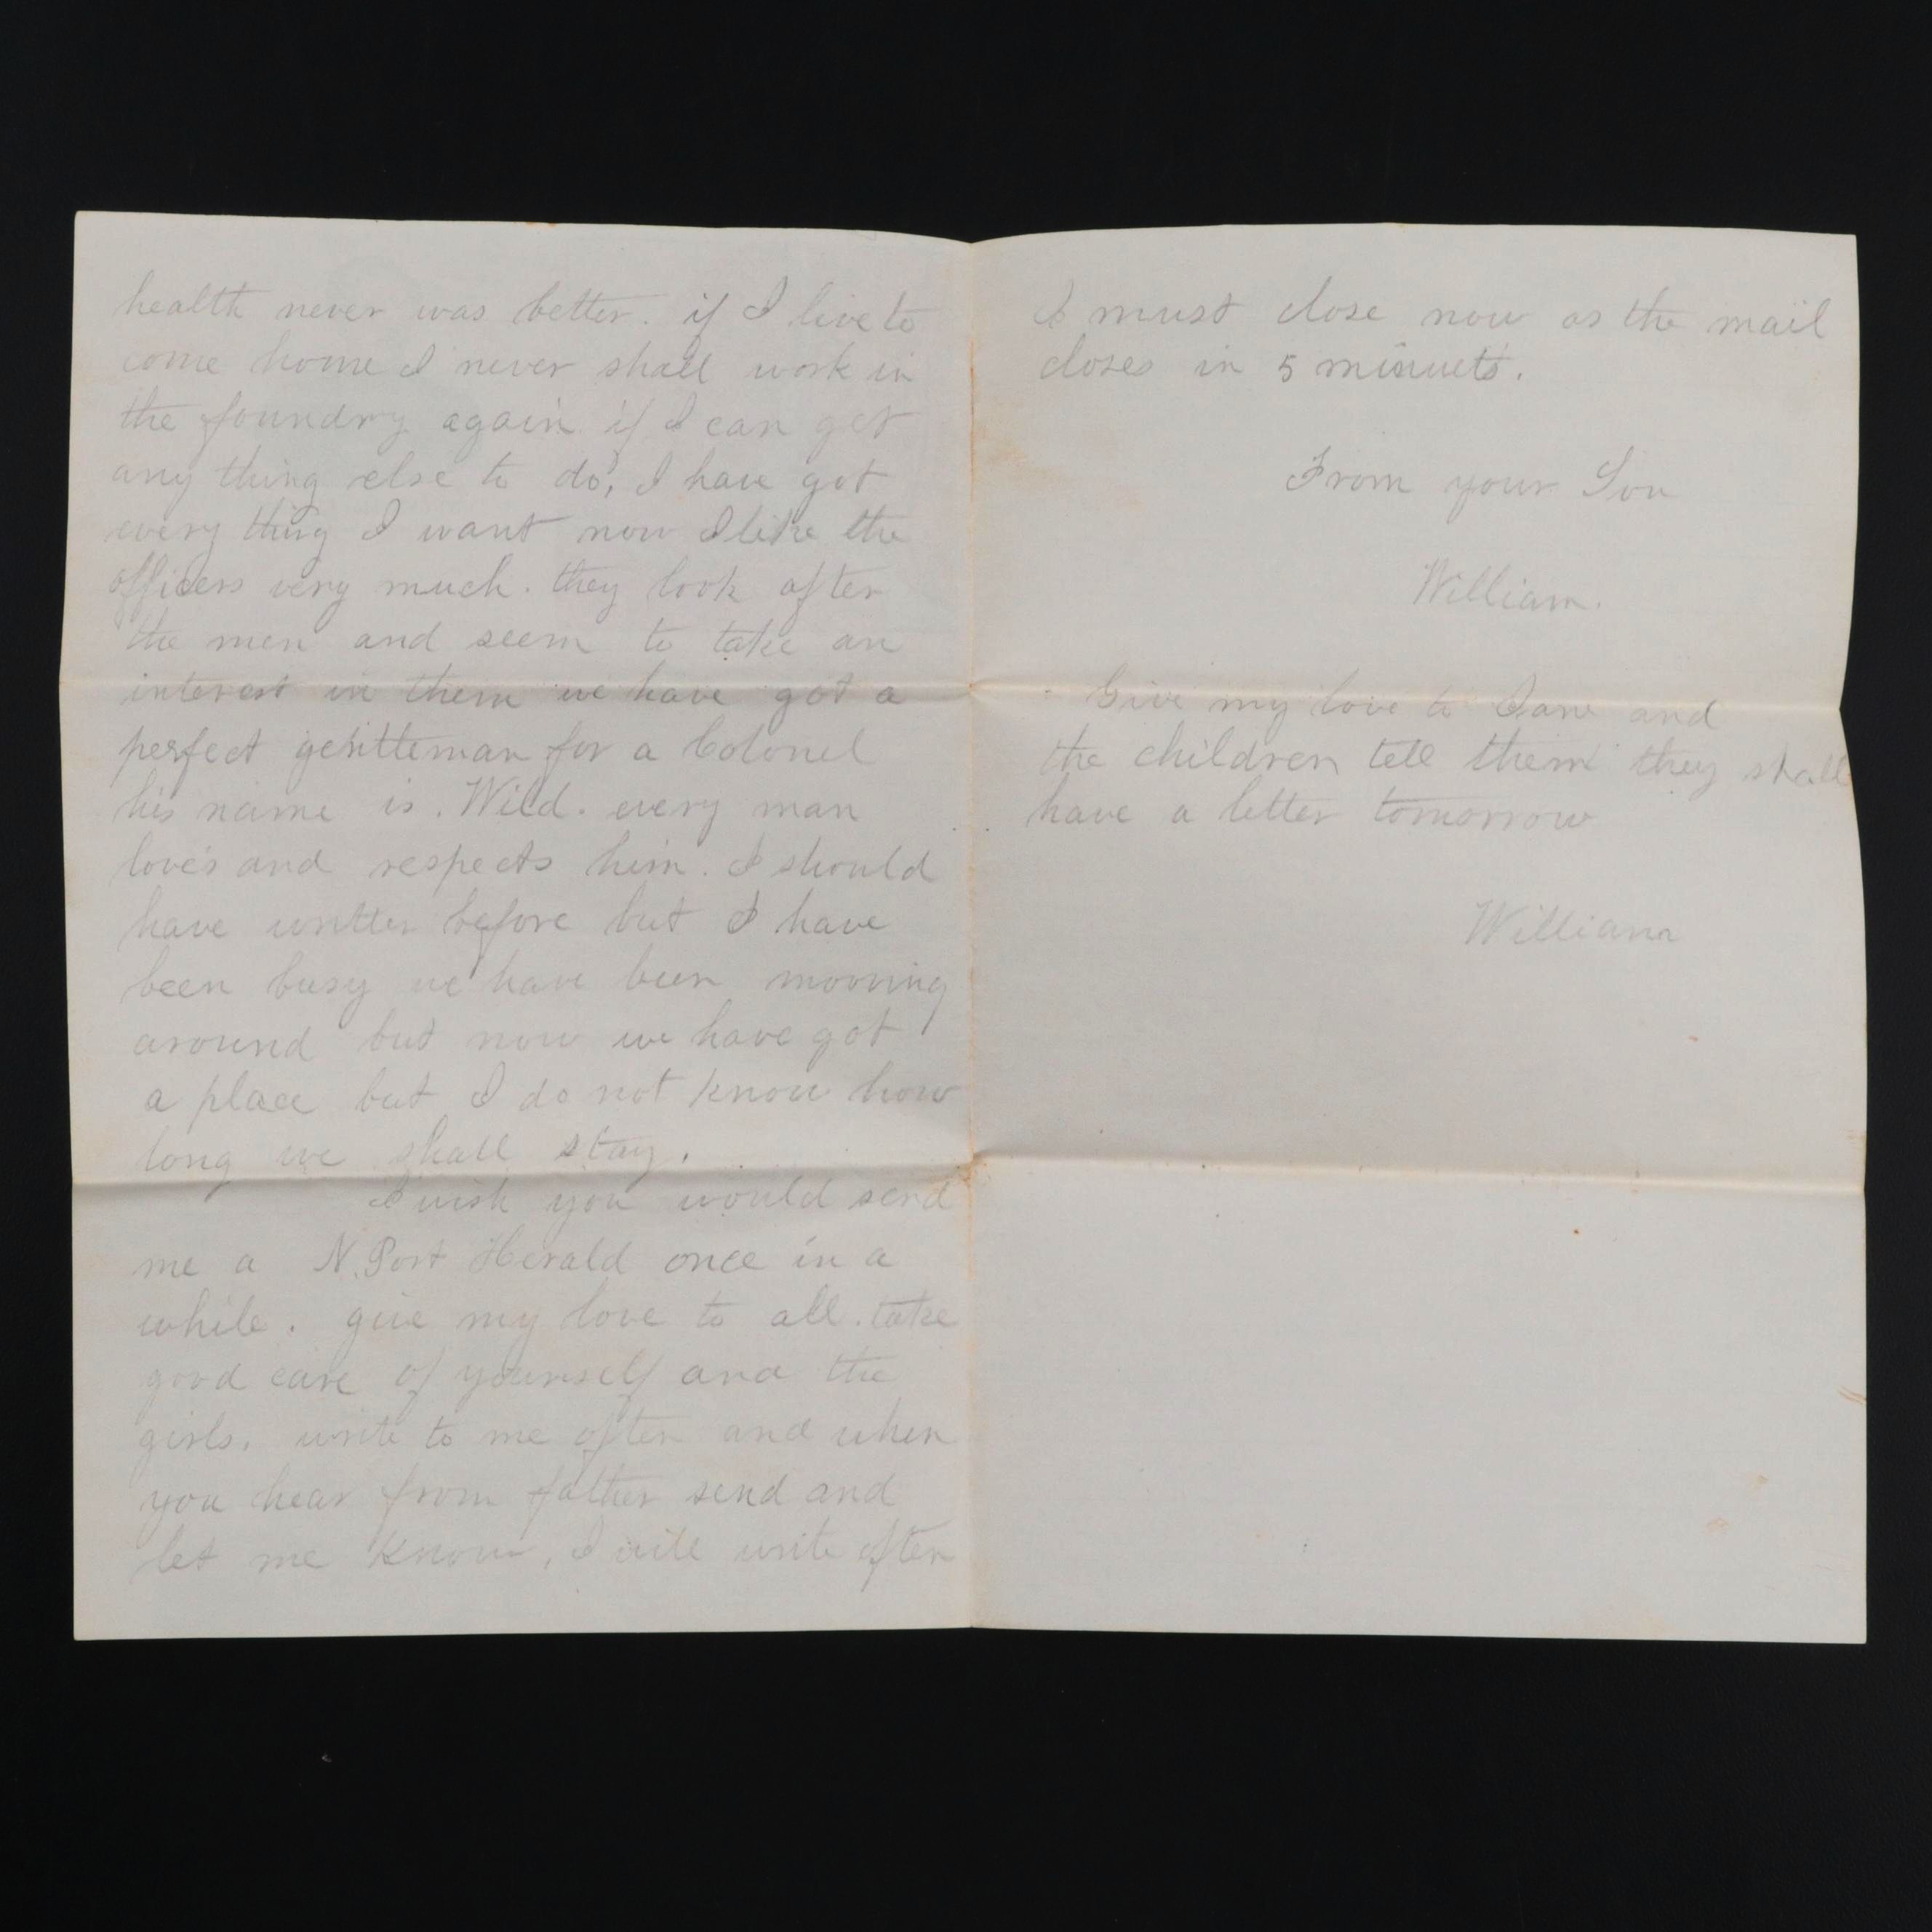 health never was better. if I live to
come home I never shall work in
the foundry again if I can get
any thing else to do, I have got
every thing I want now I like the
officers very much. they look after
the men and seem to take an
interest in them we have got a
perfect gentleman for a Colonel
his name is. Wild. every man
loves and respects him. I should
have written before but I have
been busy we have been mooving
around but now we have got
a place but I do not know how
long we shall stay.
I wish you would send
me a N. Port Herald once in a
while. give my love to all. take
good care of yourself and the
girls. write to me often and when
you hear from father send and
let me know, I will write often
I must close now as the mail
closes in 5 minuets.
From your Son
William.
Give my love to Jane and
the children tell them they shall
have a letter tomorrow
William